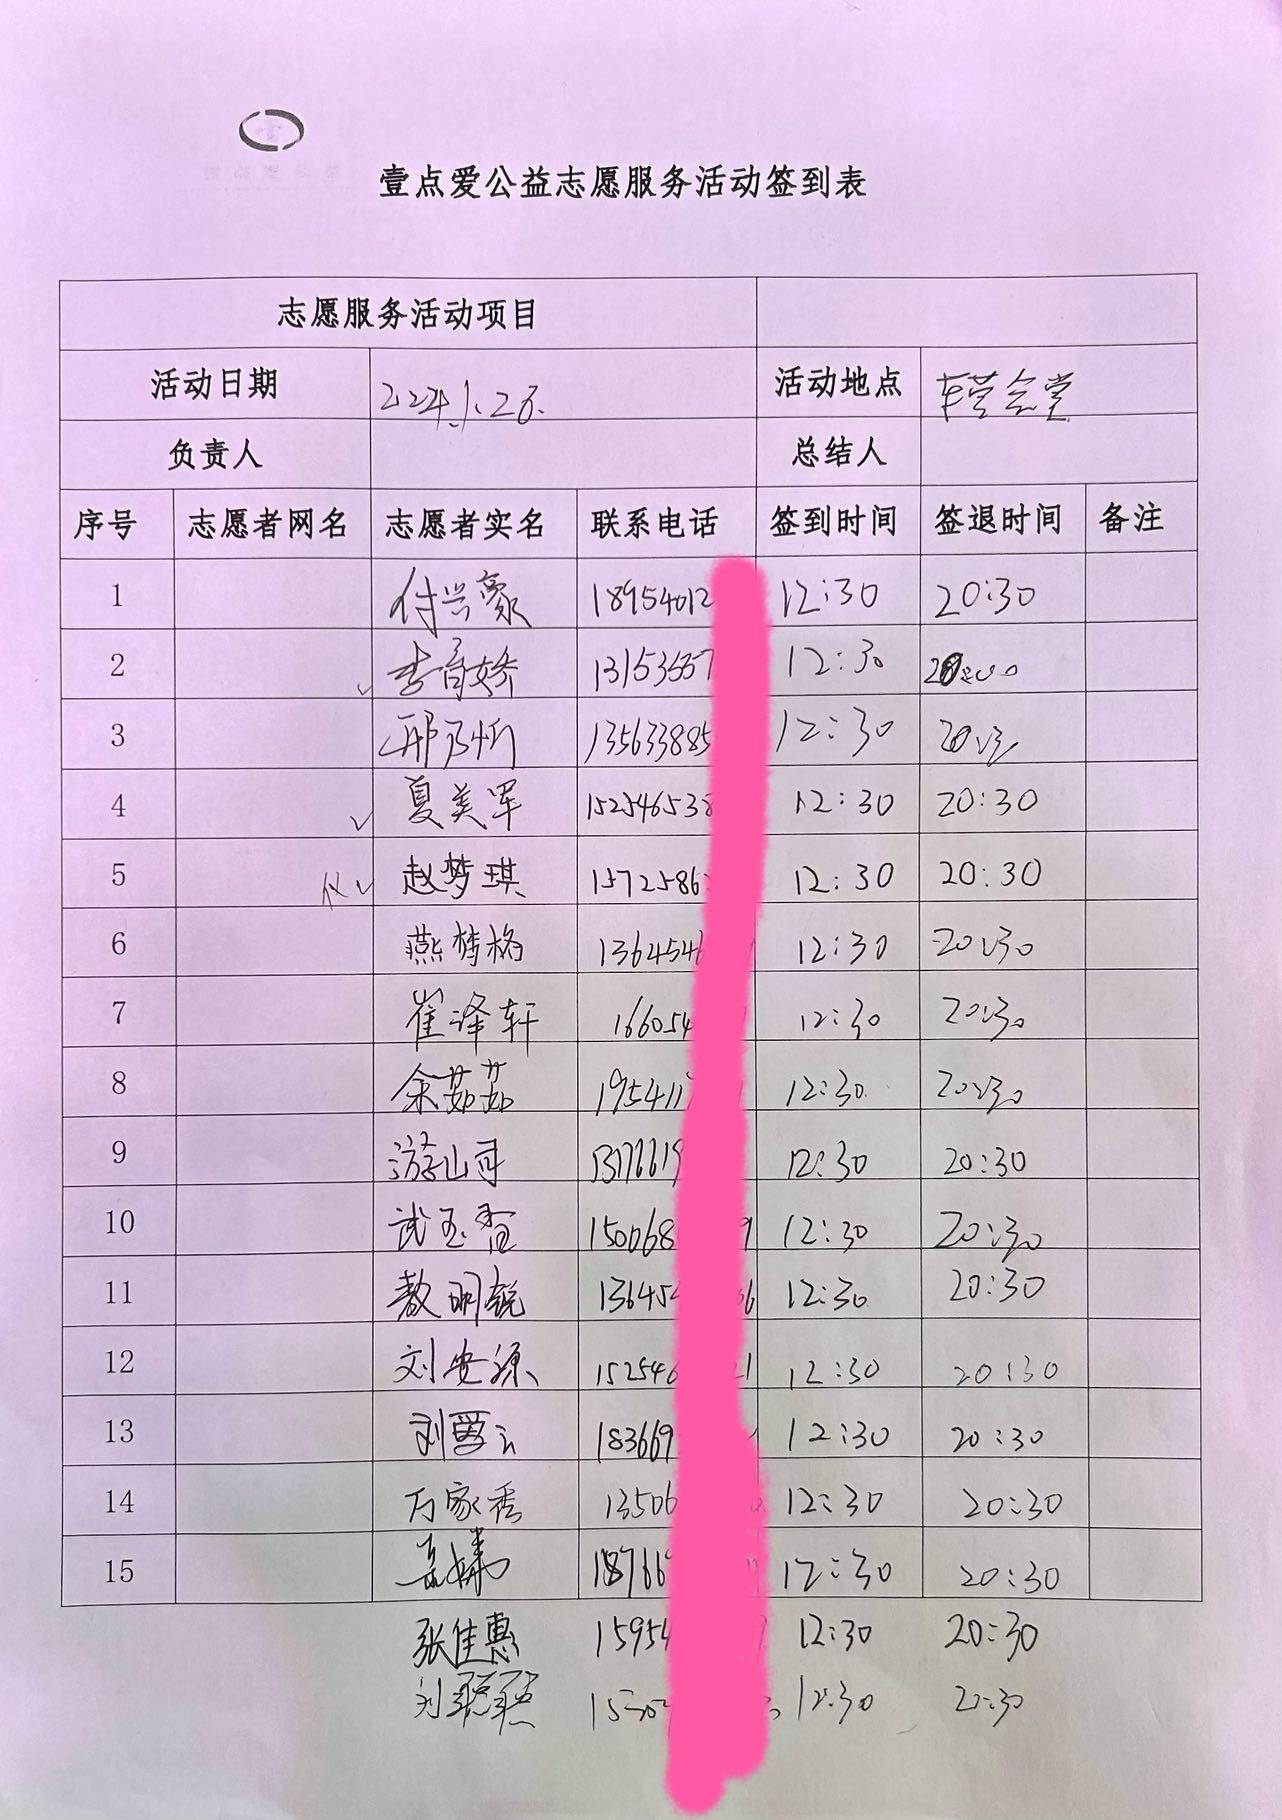 壹点爱公益志愿服务活动签到表
志愿服务活动项目
活动日期 2024.1.26. 活动地点 车营会堂
负责人 总结人
序号 志愿者网名 志愿者实名 联系电话 签到时间 签退时间 备注
1 付兴豪 18954012 12:30 20:30
2 李育娇 1315365 12:30
3 邢乃忻 135633885 12:30 20:30
4 夏美军 152546538 12:30 20:30
5 赵梦琪 1572586 12:30 20:30
6 燕梦格 1364546 12:30 20:30
7 崔泽轩 166054 12:30 20:30
8 余茹茹 195411 12:30 20:30
9 游山司 1376619 12:30 20:30
10 武玉香 150068 9 12:30 20:30
11 敖明锐 13645 06 12:30 20:30
12 刘安源 152546 21 12:30 20:30
13 刘云 183669 12:30 20:30
14 万家秀 13506 12:30 20:30
15 18766 12:30 20:30
张佳惠 15954 12:30 20:30
刘聪聪 12:30 20:30